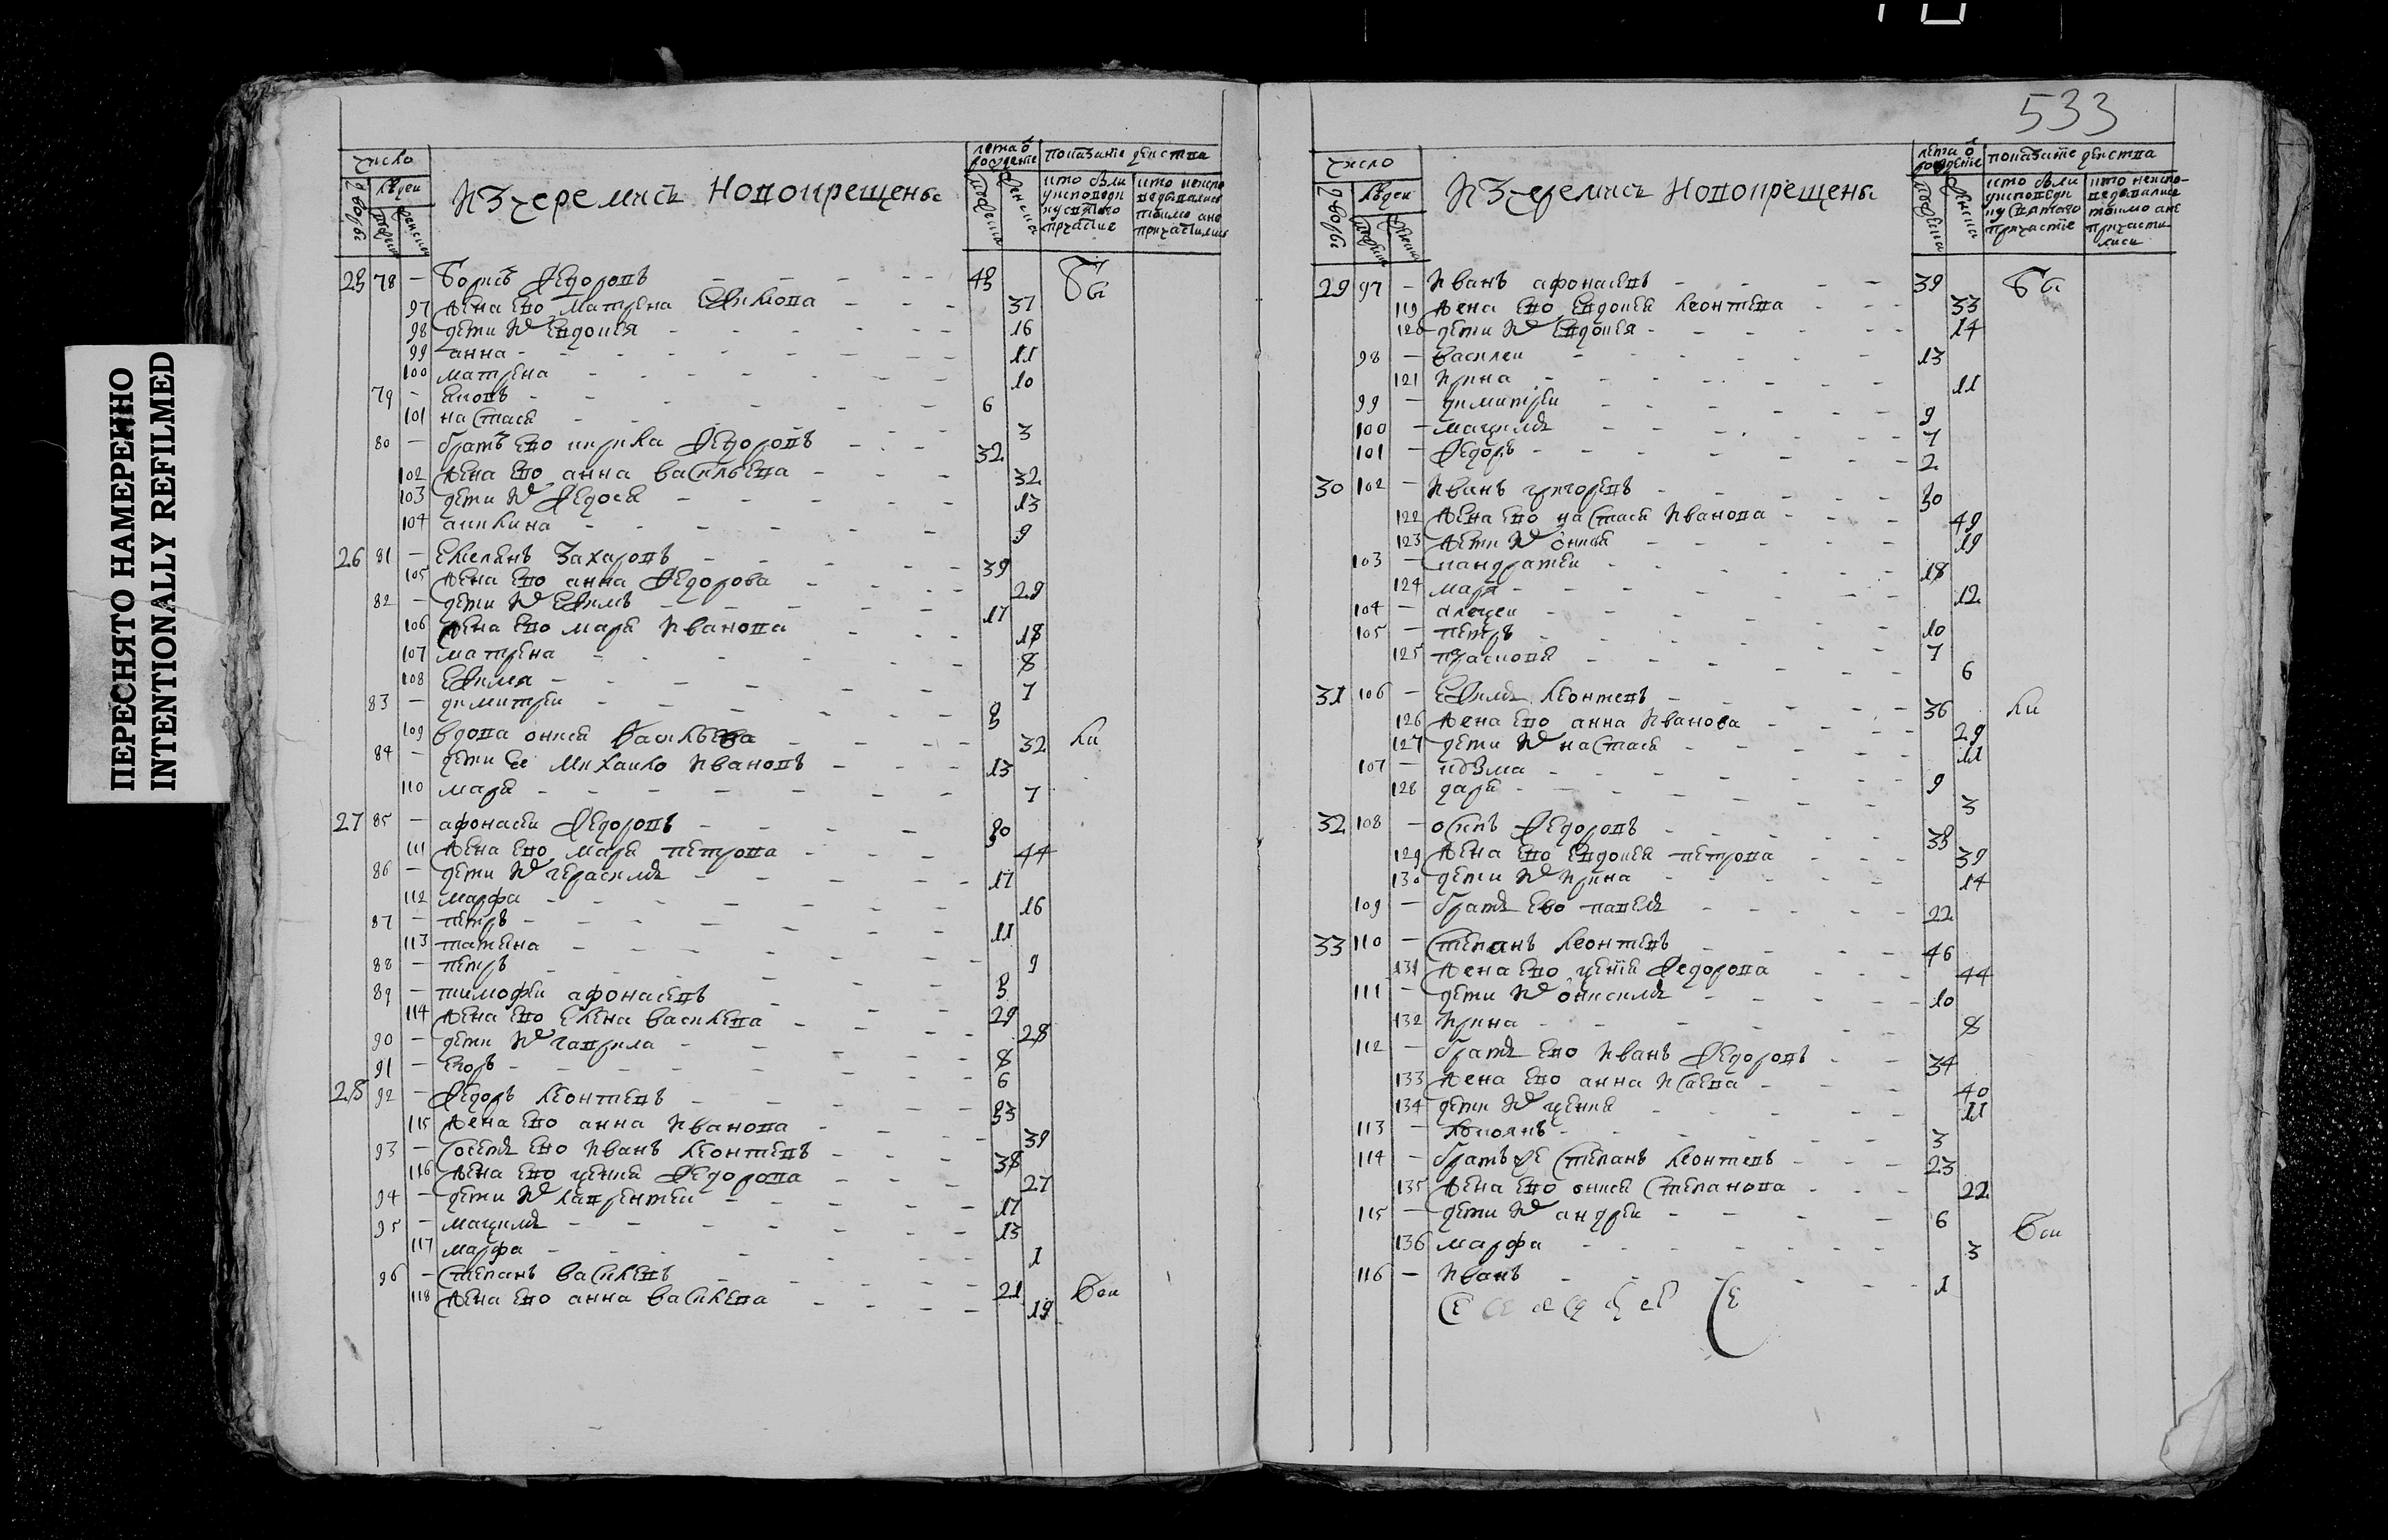 ПЕРЕСНЯТО НАМЕРЕННО
INTENTIONALLY REFILMED
число
дворы
людей
мужеска
женска
изчеремисъ новокрещены
лета ѿ рождение
мужеска
женска
показание действа
кто были у исповеди и у святаго причастие
кто неисповедывались токмо а не причастились
25 78 — борисъ федоровъ 45 Бы
97 жена ево матрена ефимова 37
98 дети их евдокея 16
99 анна 11
100 матрена 10
79 — 6
101 настасея 3
80 — братъ ево кирила федоровъ 32
102 жена ево анна васильева 32
103 дети их федосея 13
104 акилина 9
26 81 — емелянъ захаровъ 39
105 жена ево анна федорова 29
82 — дети их ефимъ 17
106 жена ево маря иванова 18
107 матрена 8
108 ефимея 7
83 — димитреи 5
109 вдова анисея васильева 32 ли
84 — дети ее михаило ивановъ 13
110 маря 7
27 85 — афонасеи федоровъ 50
111 жена ево маря петрова 44
86 — дети их герасимъ 17
112 марфа 16
87 — петръ 11
113 татяна 9
88 — петръ 5
89 — тимофеи афонасевъ 29
114 жена ево елена василева 28
90 — дети их гаврила 8
91 — егоръ 6
28 92 — федоръ леонтевъ 53
115 жена ево анна иванова 39
93 — соседъ ево иванъ леонтевъ 38
116 жена ево федорова 27
94 — дети их лаврентеи 17
95 — максимъ 13
117 марфа 1
96 — степанъ василевъ 21 Бои
118 жена ево анна василева 19
533
число
дворы
людей
мужеска
женска
изчеремисъ новокрещены
лета ѿ рождение
мужеска
женска
показание действа
кто были у исповеди и у святаго причастие
кто неисповедались токмо а не причастились
29 97 — иванъ афонасевъ 39 Бы
119 жена ево евдокея леонтева 33
120 дети их евдокея 14
98 — василеи 13
121 ирина 11
99 — димитреи 9
100 — максимъ 7
101 — федоръ 2
30 102 — иванъ григоревъ 50
122 жена ево настасея иванова 49
123 дети их анисея 19
103 — кандратеи 18
124 маря 12
104 — алексеи 10
105 — петръ 7
125 прасковея 6
31 106 — ефимъ леонтевъ 36 ли
126 жена ево анна иванова 29
127 дети их настасея 11
107 — кузма 9
128 даря 3
32 108 — осипъ федоровъ 35
129 жена ево евдокея петрова 39
130 дети их ирина 14
109 — братъ ево павелъ 22
33 110 — степанъ леонтевъ 46
131 жена ево федорова 44
111 — дети их анисимъ 10
132 ирина 8
112 — братъ ево иванъ федоровъ 34
133 жена ево анна исаева 40
134 дети их 11
113 — 3
114 — братъ же степанъ леонтевъ 23
135 жена ево анисея степанова 22
115 — дети их андреи 6 Бои
136 марфа 3
116 — иванъ 1